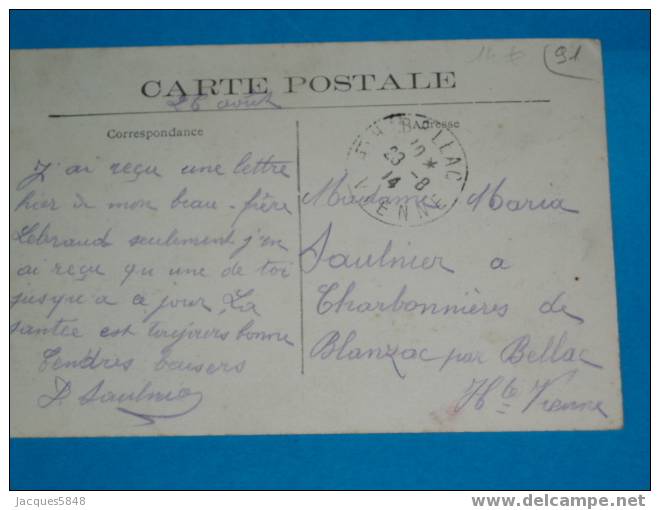 14 *
91
CARTE POSTALE
26 août
Correspondance
Adresse
J'ai reçu une lettre
hier de mon beau-frère
Lebraud seulement j'en
ai reçu qu'une de toi
jusqu'a a jour. La
santee est toujours bonne
Tendres baisers
D Saulnier
BELLAC
23 -8
14
VIENNE
Madame Maria
Saulnier a
Charbonnières de
Blanzac par Bellac
Hte Vienne
Jacques5848
delcampe.net